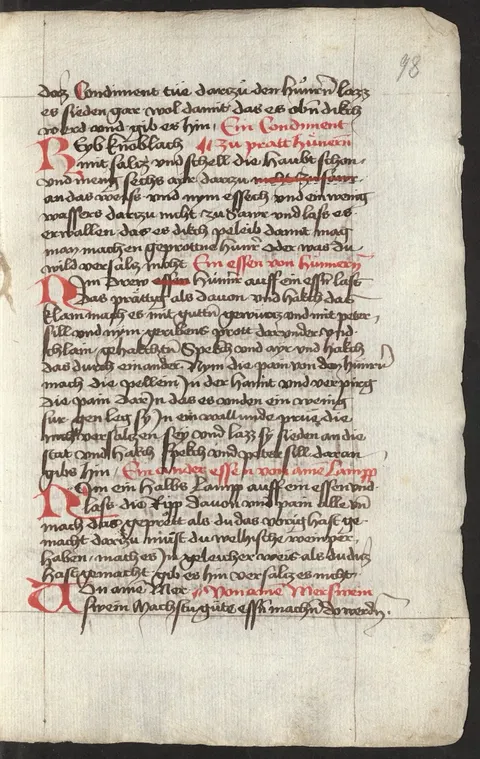 98
das Condiment tue darczu den hünr̄n lazz
es sieden gar wol damit das es obn̄ dikch
werd vnd gib es hin Ein Condiment
REyb knoblach zu pratt hünern
mit salcz vnd schell die haubt schon
vnd meng sechs ayr darczu nicht zu sawr
an das weiss vnd nym essich vnd ein wenig
wassers darczu nicht zu sawr vnd lass es
erwallen das es dikch peleib damit mag
man machen geprottne hünr̄ oder was du
wild versalcz nicht Ein essen von hünnern̄
NIm drew essen hünnr̄ auff ein essn̄ lass
das prättigs als dauon vnd hakch das
klain mach es mit guttn̄ gewürcz vnd mit peter
sill vnd nym geribens prott darunder vnd
schlain gehakchtn̄ Spekch vnd ayr vnd hakch
das durch einander Nym die pain von den hünrn̄
mach die pellein Jn der hannt vnd verpirg
die pain darJn das es vonden ein wenig
fur gen leg sy Jn ein wallunde prüe die
nicht versalczen sey vnd lazz sy sieden an die
stat vnd hakch spekch vnd peter sill daran
gibs hin Ein ander essen von aim̄e lampp
NIm ein halbs lampp auff ein essen vnd
lass die Ripp dauon vnd pain alle vn̄
mach das geprätt als du das vorig hast ge
macht darczu müst du welhische weinper
haben mach es Jn geleicher weis als du ditz
hast gemacht gib es hin versalcz es nicht
VOn aim̄e Mer Von aim̄e Merswein
swein Machstu gute essn̄ machn̄ do werdn̄